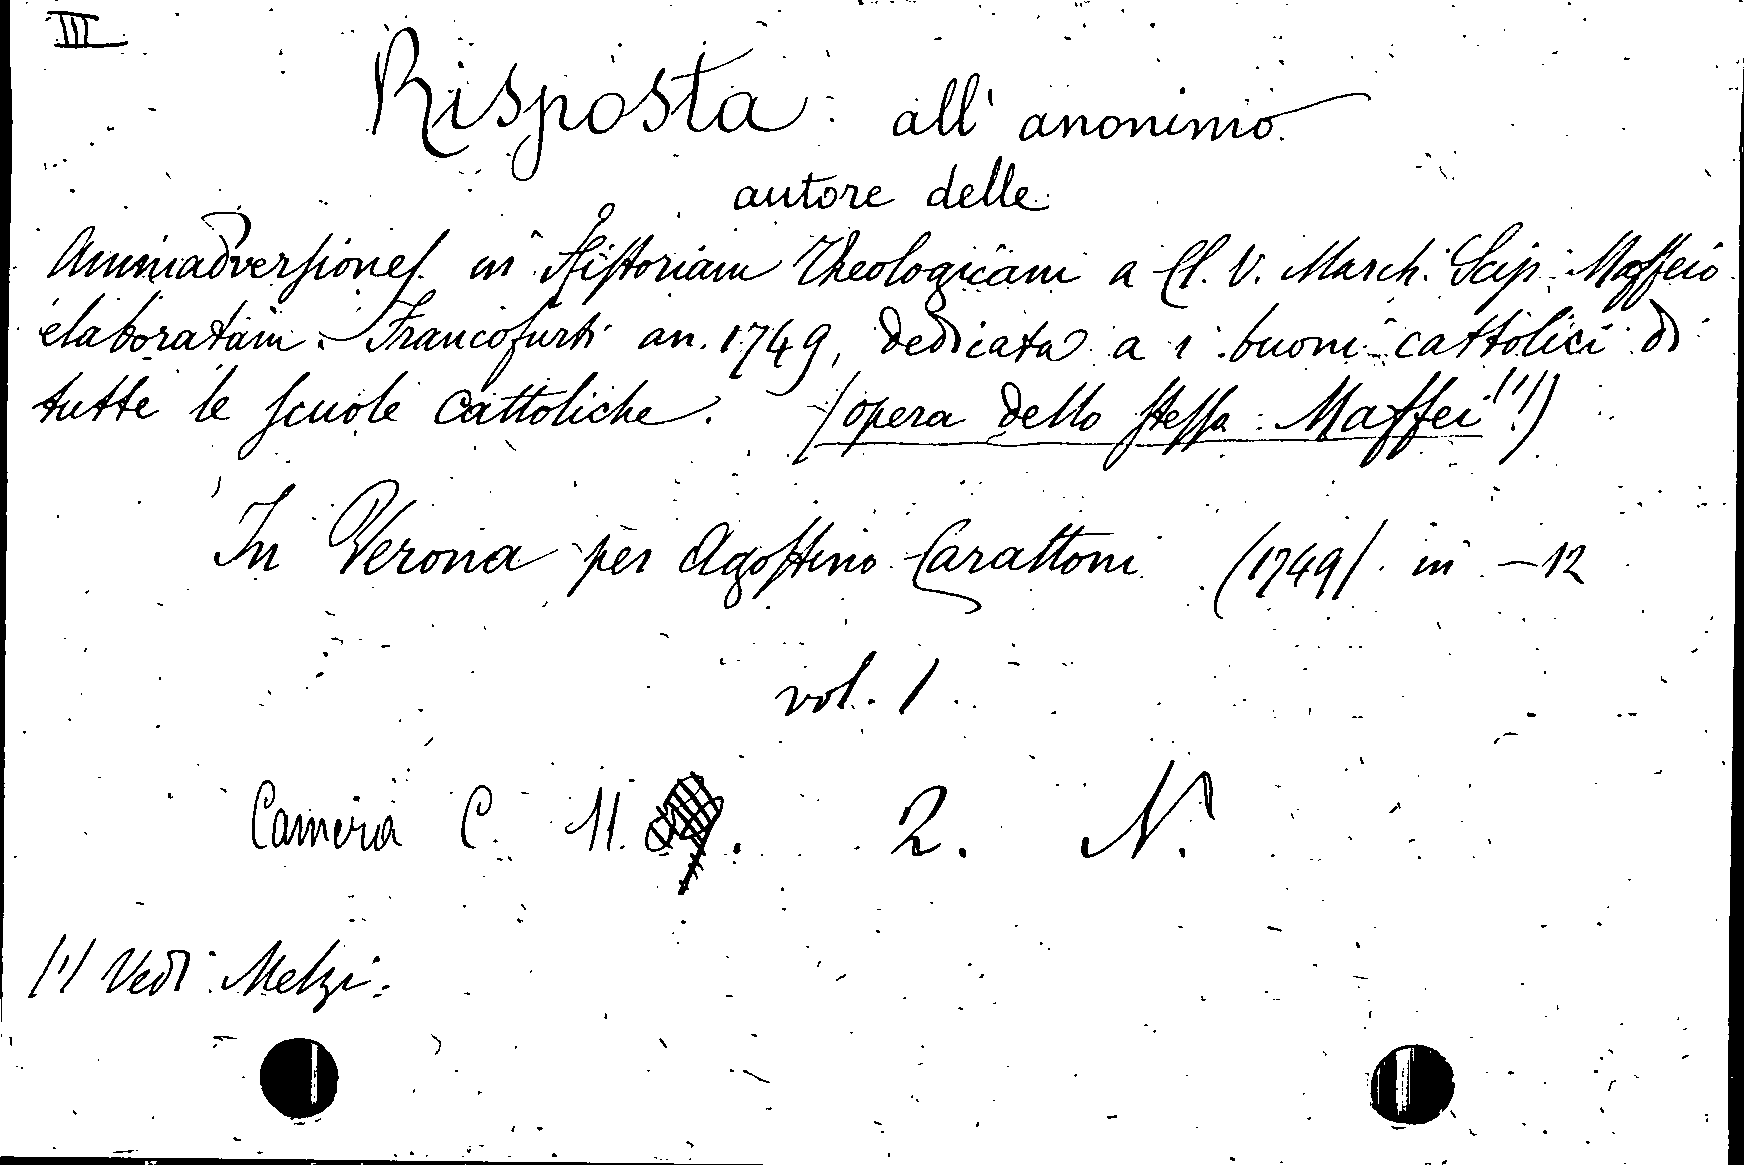 III
Risposta all' anonimo
autore delle
Animadversiones in Historiam Theologicam a Cl. V. March. Scip. Maffeio
elaboratam Francofurti an. 1749, dedicata a i buoni cattolici di
tutte le scuole cattoliche. (opera dello stesso Maffei (1))
In Verona per Agostino Carattoni (1749) in -12
vol. 1
Camera C. 11. 2. N.
(1) Vedi Melzi.